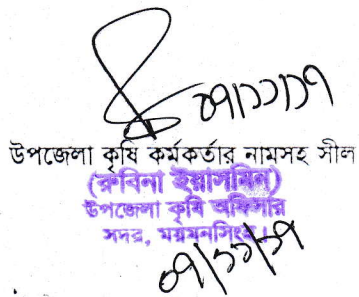 ০৭/১১/১৭
উপজেলা কৃষি কর্মকর্তার নামসহ সীল
(রুবিনা ইয়াসমিন)
উপজেলা কৃষি অফিসার
সদর, ময়মনসিংহ।
০৭/১১/১৭